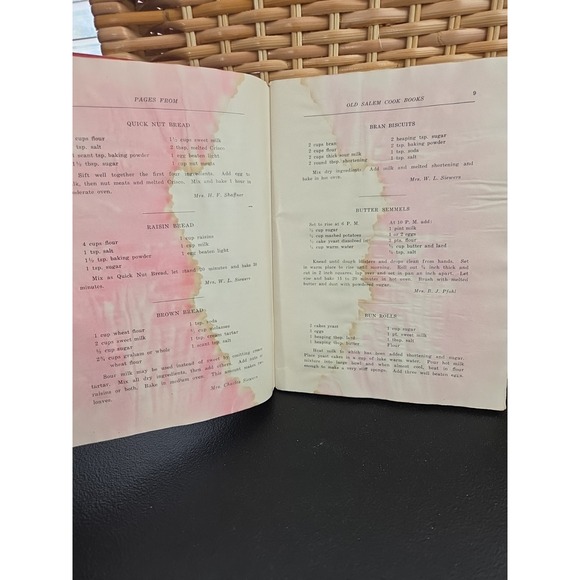 PAGES FROM
QUICK NUT BREAD
cups flour
tsp. salt
scant tsp. baking powder
1½ cups sweet milk
2 tbsp. melted Crisco
1 egg beaten light
cup nut meats
Sift well together the first four ingredients. Add egg to
then nut meats and melted Crisco. Mix and bake 1 hour in
moderate oven.
Mrs. H. F. Shaffner
RAISIN BREAD
4 cups flour
1 tsp. salt
1½ tsp. baking powder
1 tsp. sugar
cup raisins
cup milk
egg beaten light
Mix as Quick Nut Bread, let stand minutes and bake
minutes.
Mrs. W. L. Siewers
BROWN BREAD
1 cup wheat flour
2 cups sweet milk
cup sugar
cups graham or whole
wheat flour
tsp. soda
cup molasses
tsp. cream tartar
scant tsp. salt
Sour milk may be used instead of sweet omitting cream
tartar. Mix all dry ingredients, then add others. Add
raisins or both. Bake in medium oven. This amount makes two
loaves.
Mrs. Charles
OLD SALEM COOK BOOKS
9
BRAN BISCUITS
2 cups bran
2 cups flour
2 cups thick sour milk
2 round tbsp. shortening
2 heaping tsp. sugar
2 tsp. baking powder
1 tsp. soda
1 tsp. salt
Mix dry ingredients. Add milk and melted shortening and
bake in hot oven.
Mrs. W. L. Siewers
BUTTER SEMMELS
Set to rise at 6 P. M.
cup sugar
cup mashed potatoes
cake yeast dissolved in
cup warm water
At 10 P. M. add:
1 pint milk
1 or 2 eggs
pts. flour
cup butter and lard
tsp. salt
Knead until dough blisters and drops clean from hands. Set
in warm place to rise until morning. Roll out ½ inch thick and
cut in 2 inch squares, lay over and set in pan not inch apart. Let
rise and bake 15 to 20 minutes in hot oven. Brush with melted
butter and dust with powdered sugar.
Mrs. B. J. Pfohl
BUN ROLLS
2 cakes yeast
2 eggs
1 heaping tbsp. lard
1 heaping tbsp. butter
cup sugar
pt. sweet milk
tbsp. salt
Flour
Heat milk to which has been added shortening and sugar.
Place yeast cakes in a cup of luke warm water. Pour hot milk
mixture into large bowl, and when almost cool, beat in flour
enough to make a very stiff sponge. Add three well beaten eggs.